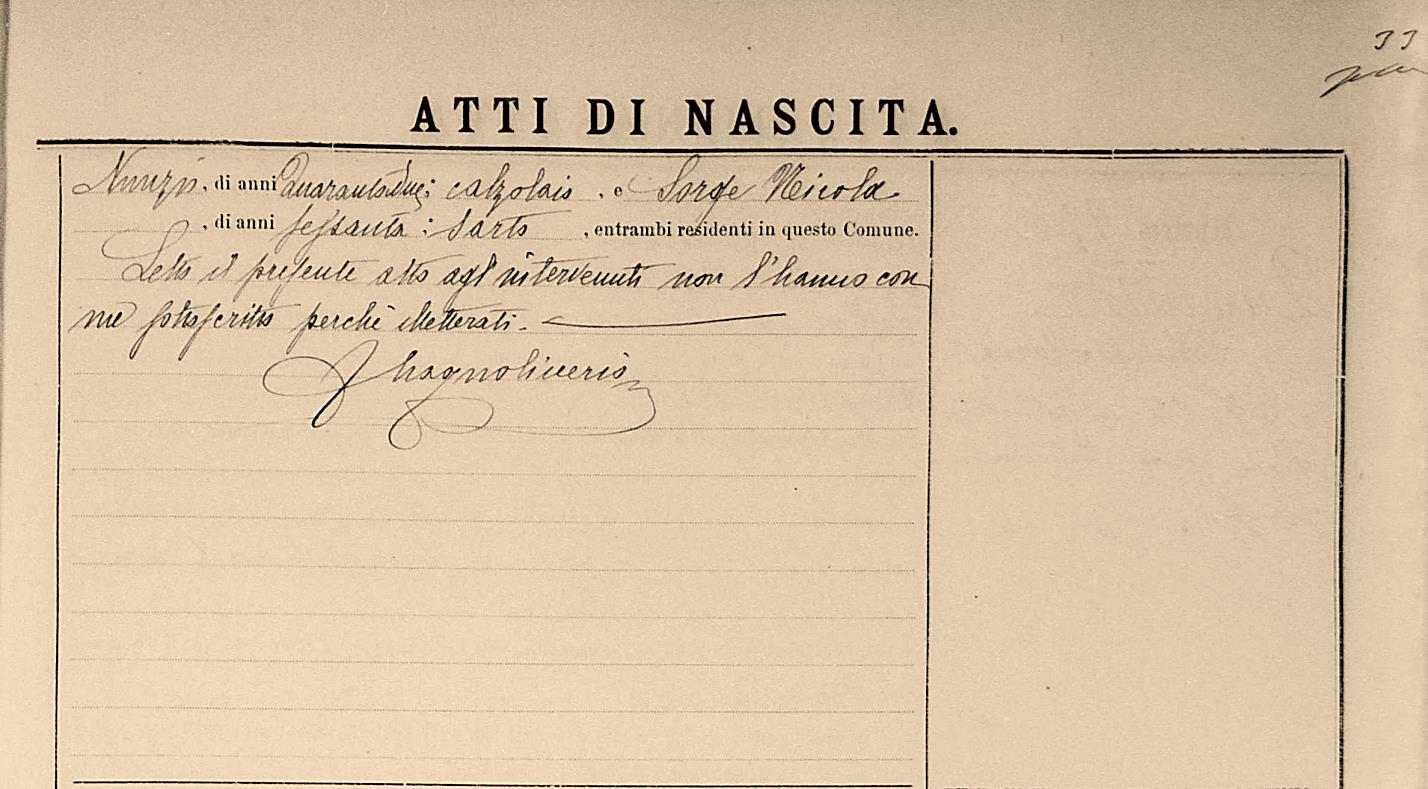 33
ATTI DI NASCITA.
Nunzio, di anni Quarantadue; calzolaio, e Sorge Nicola
, di anni sessanta: sarto, entrambi residenti in questo Comune.
Letto il presente atto agl'intervenuti non l'hanno con
me sottoscritto perchè illetterati.